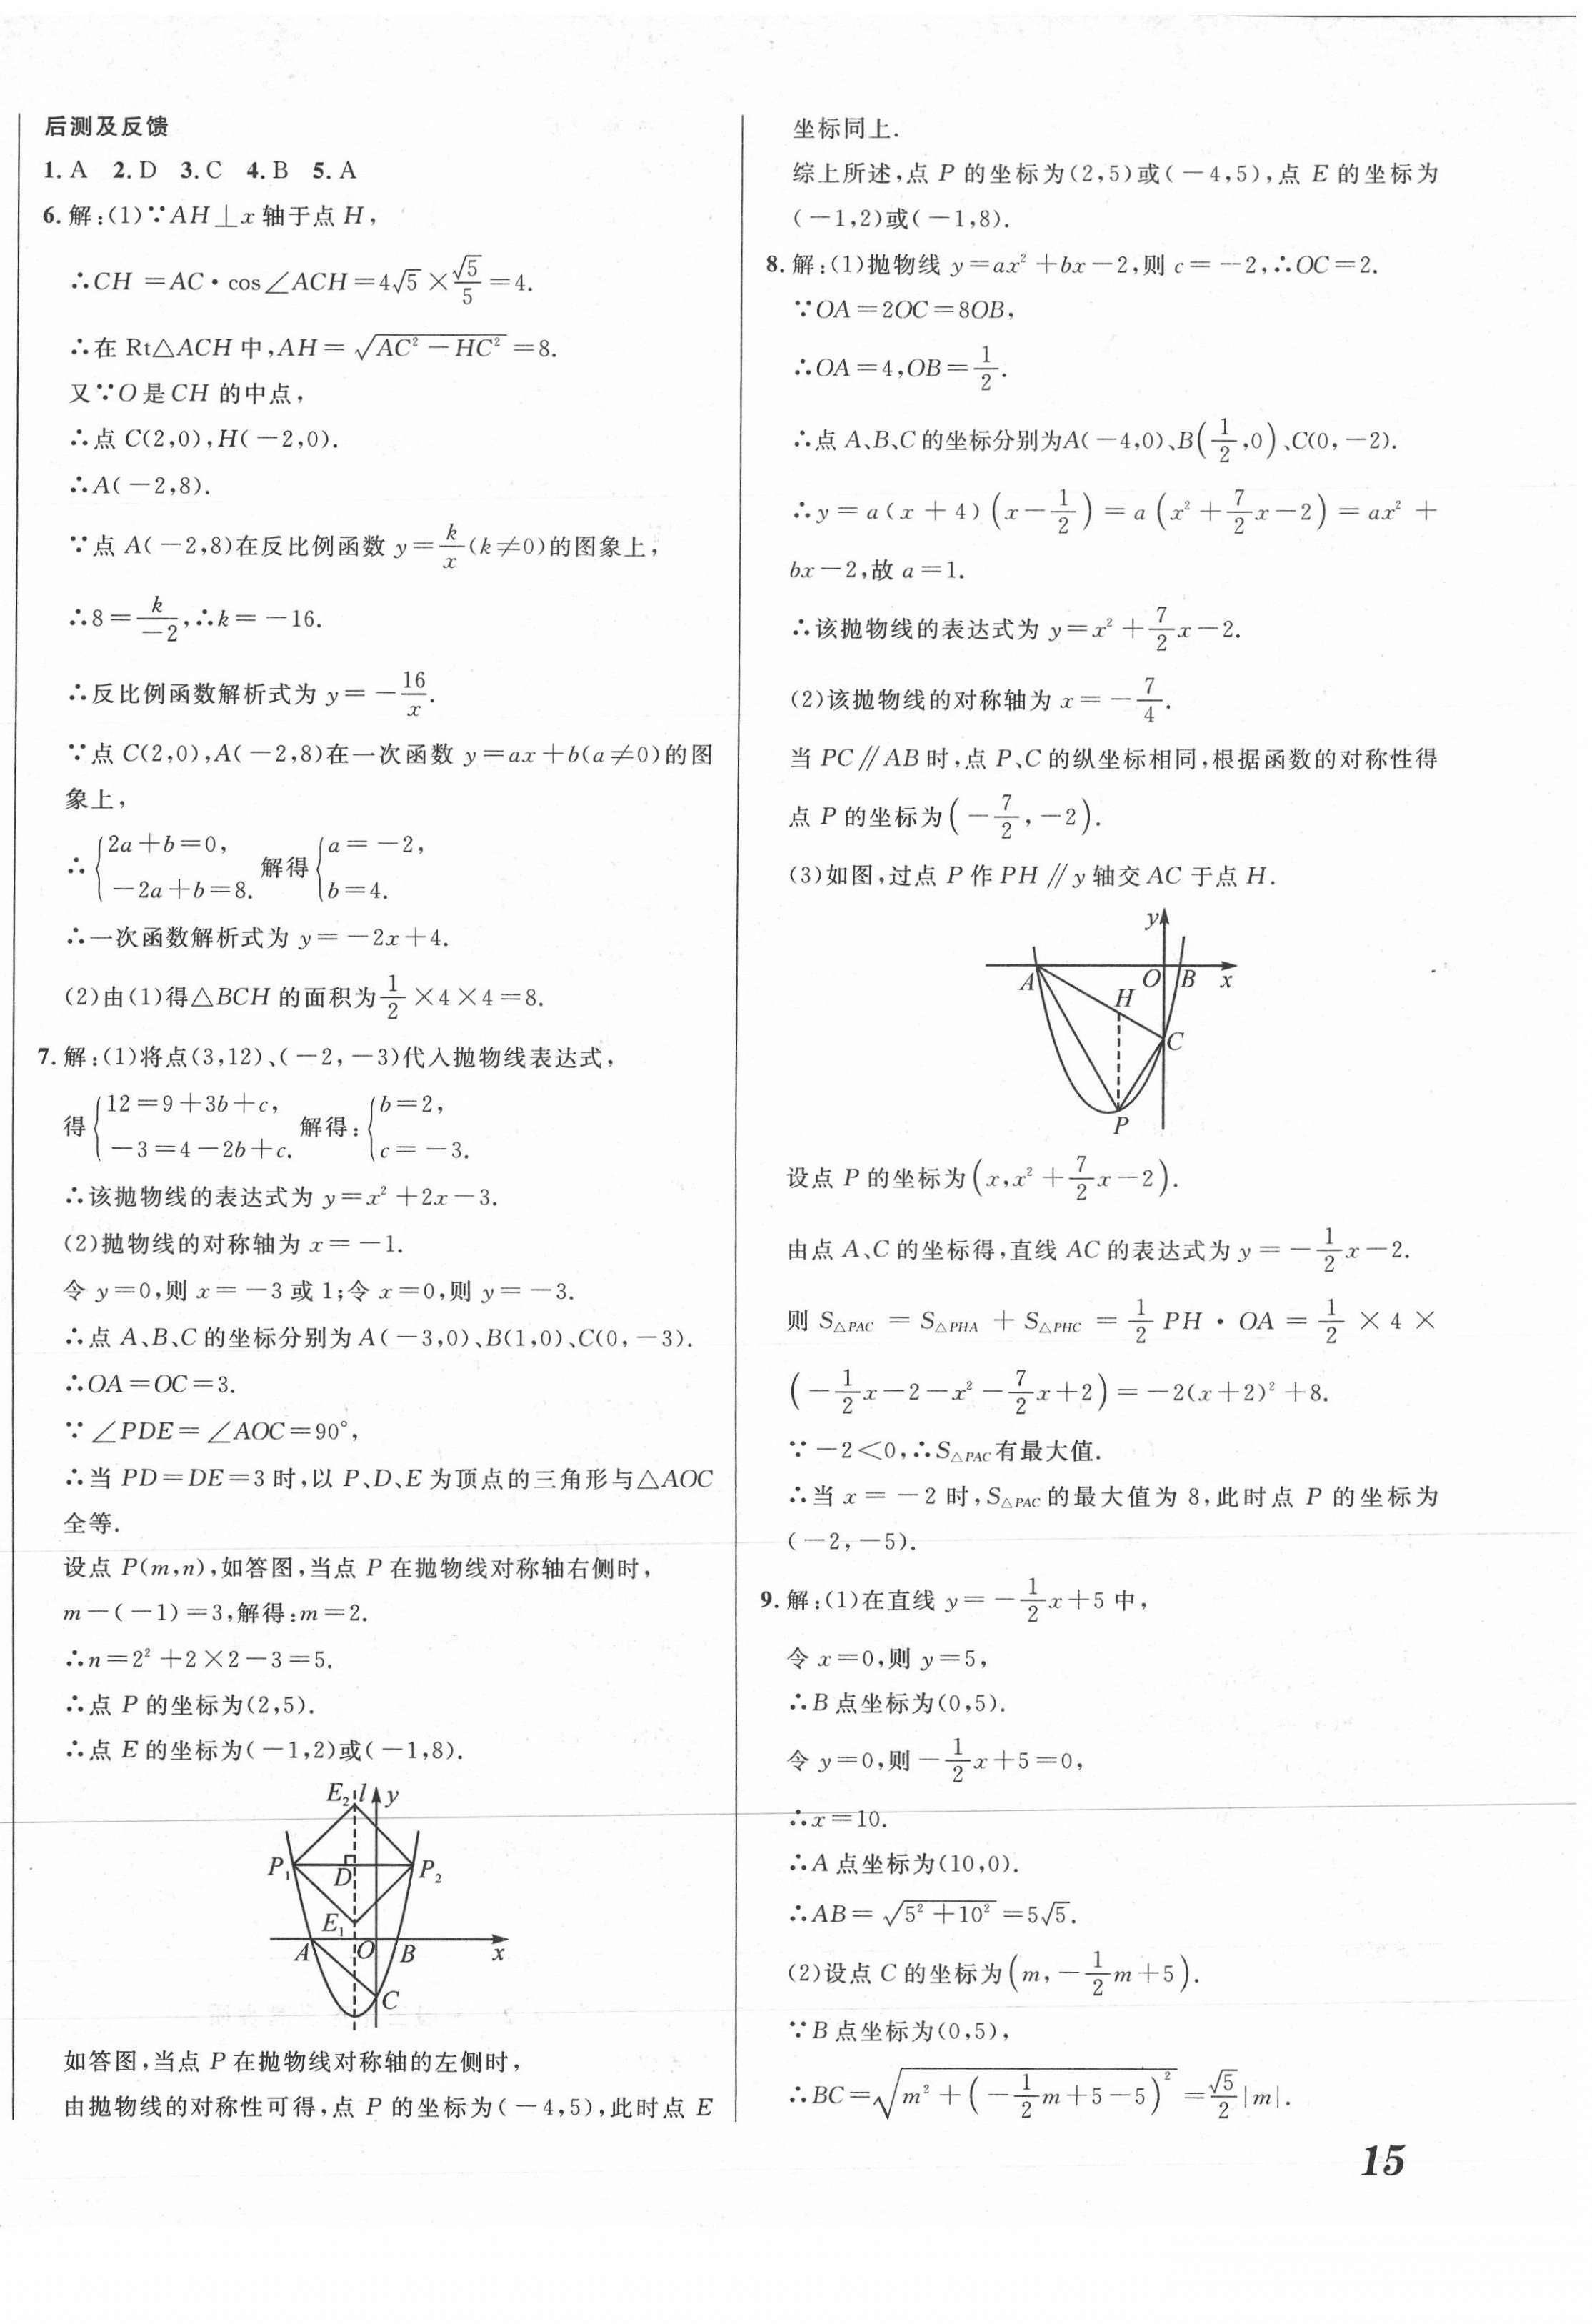 后测及反馈
1. A  2. D  3. C  4. B  5. A
6. 解:(1)∵AH⊥x 轴于点 H,
∴CH=AC·cos∠ACH=4√5×√5/5=4.
∴在 Rt△ACH 中,AH=√(AC²-HC²)=8.
又∵O 是 CH 的中点,
∴点 C(2,0),H(-2,0).
∴A(-2,8).
∵点 A(-2,8)在反比例函数 y=k/x(k≠0)的图象上,
∴8=k/-2,∴k=-16.
∴反比例函数解析式为 y=-16/x.
∵点 C(2,0),A(-2,8)在一次函数 y=ax+b(a≠0)的图
象上,
∴{2a+b=0, -2a+b=8. 解得{a=-2, b=4.
∴一次函数解析式为 y=-2x+4.
(2)由(1)得△BCH 的面积为1/2×4×4=8.
7. 解:(1)将点(3,12)、(-2,-3)代入抛物线表达式,
得{12=9+3b+c, -3=4-2b+c. 解得:{b=2, c=-3.
∴该抛物线的表达式为 y=x²+2x-3.
(2)抛物线的对称轴为 x=-1.
令 y=0,则 x=-3 或 1;令 x=0,则 y=-3.
∴点 A、B、C 的坐标分别为 A(-3,0)、B(1,0)、C(0,-3).
∴OA=OC=3.
∵∠PDE=∠AOC=90°,
∴当 PD=DE=3 时,以 P、D、E 为顶点的三角形与△AOC
全等.
设点 P(m,n),如答图,当点 P 在抛物线对称轴右侧时,
m-(-1)=3,解得:m=2.
∴n=2²+2×2-3=5.
∴点 P 的坐标为(2,5).
∴点 E 的坐标为(-1,2)或(-1,8).
E₂ l y
P₁ D P₂
E₁
A O B x
C
如答图,当点 P 在抛物线对称轴的左侧时,
由抛物线的对称性可得,点 P 的坐标为(-4,5),此时点 E
坐标同上.
综上所述,点 P 的坐标为(2,5)或(-4,5),点 E 的坐标为
(-1,2)或(-1,8).
8. 解:(1)抛物线 y=ax²+bx-2,则 c=-2,∴OC=2.
∵OA=2OC=8OB,
∴OA=4,OB=1/2.
∴点 A、B、C 的坐标分别为A(-4,0)、B(1/2,0)、C(0,-2).
∴y=a(x+4)(x-1/2)=a(x²+7/2x-2)=ax²+
bx-2,故 a=1.
∴该抛物线的表达式为 y=x²+7/2x-2.
(2)该抛物线的对称轴为 x=-7/4.
当 PC∥AB 时,点 P、C 的纵坐标相同,根据函数的对称性得
点 P 的坐标为(-7/2,-2).
(3)如图,过点 P 作 PH∥y 轴交 AC 于点 H.
y
A O B x
H
C
P
设点 P 的坐标为(x,x²+7/2x-2).
由点 A、C 的坐标得,直线 AC 的表达式为 y=-1/2x-2.
则 S△PAC=S△PHA+S△PHC=1/2PH·OA=1/2×4×
(-1/2x-2-x²-7/2x+2)=-2(x+2)²+8.
∵-2<0,∴S△PAC有最大值.
∴当 x=-2 时,S△PAC的最大值为 8,此时点 P 的坐标为
(-2,-5).
9. 解:(1)在直线 y=-1/2x+5 中,
令 x=0,则 y=5,
∴B 点坐标为(0,5).
令 y=0,则-1/2x+5=0,
∴x=10.
∴A 点坐标为(10,0).
∴AB=√(5²+10²)=5√5.
(2)设点 C 的坐标为(m,-1/2m+5).
∵B 点坐标为(0,5),
∴BC=√(m²+(-1/2m+5-5)²)=√5/2|m|.
15